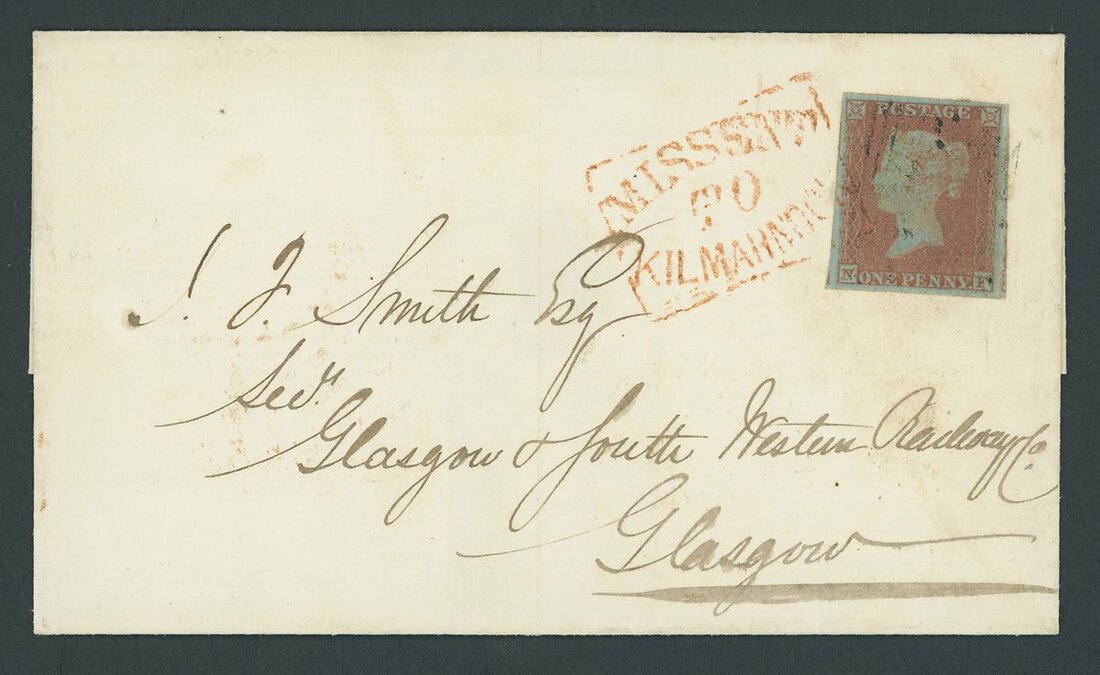 MISSENT
TO
KILMARNOCK
POSTAGE
N ONE PENNY F
J. J. Smith Esq
Secy.
Glasgow & South Western Railway Co
Glasgow